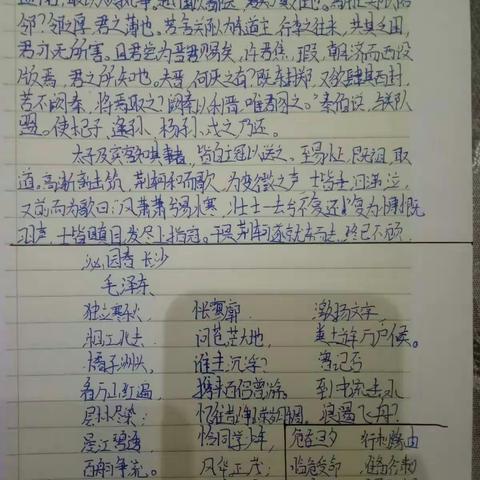 邻？邻之厚，君之薄也。若舍郑以为东道主，行李之往来，共其乏困，
君亦无所害。且君尝为晋君赐矣，许君焦、瑕，朝济而夕设
版焉，君之所知也。夫晋，何厌之有？既东封郑，又欲肆其西封，
若不阙秦，将焉取之？阙秦以利晋，唯君图之。”秦伯说，与郑人
盟。使杞子、逢孙、杨孙戍之，乃还。
太子及宾客知其事者，皆白衣冠以送之。至易水上，既祖，取
道。高渐离击筑，荆轲和而歌，为变徵之声，士皆垂泪涕泣。
又前而为歌曰：“风萧萧兮易水寒，壮士一去兮不复还！”复为慷慨
羽声，士皆瞋目，发尽上指冠。于是荆轲遂就车而去，终已不顾。
沁园春 长沙
毛泽东
独立寒秋， 怅寥廓 激扬文字，
湘江北去， 问苍茫大地， 粪土当年万户侯。
橘子洲头， 谁主沉浮？ 曾记否
看万山红遍， 携来百侣曾游， 到中流击水
层林尽染； 忆往昔峥嵘岁月稠， 浪遏飞舟？
漫江碧透， 恰同学少年， 危在旦夕
百舸争流。 风华正茂； 临危受命